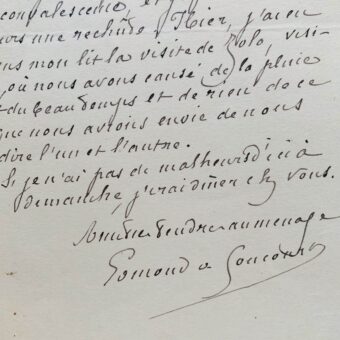 convalescence, et
une rechute. Hier, j'ai eu
mon lit la visite de Zola, visi-
, où nous avons causé de la pluie
du beau temps et de rien de ce
que nous avions envie de nous
dire l'un et l'autre.
Si je n'ai pas de malheurs d'ici à
dimanche, j'irai dîner chez vous.
Amitié tendre au ménage
Edmond de Goncourt